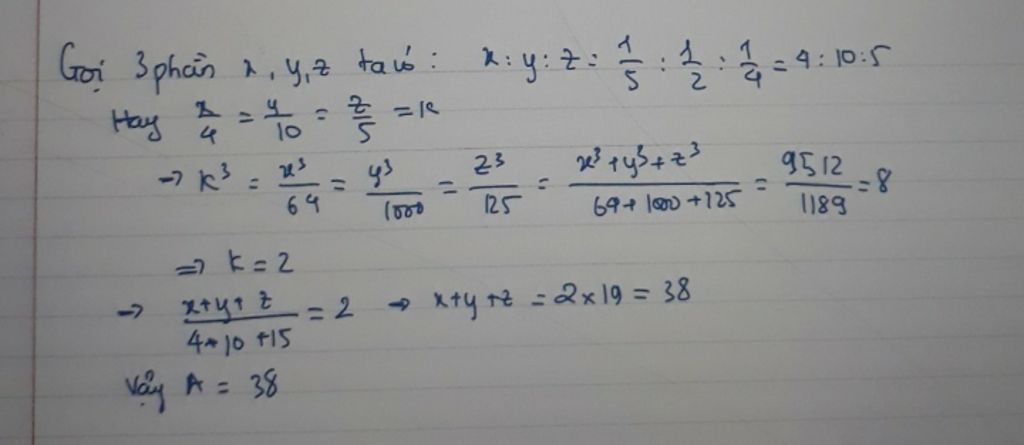 Gọi 3 phần x, y, z ta có : x : y : z = 1/5 : 1/2 : 1/4 = 4 : 10 : 5
Hay x/4 = y/10 = z/5 = k
→ k³ = x³/64 = y³/1000 = z³/125 = (x³ + y³ + z³)/(64 + 1000 + 125) = 9512/1189 = 8
⇒ k = 2
→ (x + y + z)/(4 + 10 + 15) = 2 → x + y + z = 2 × 19 = 38
Vậy A = 38